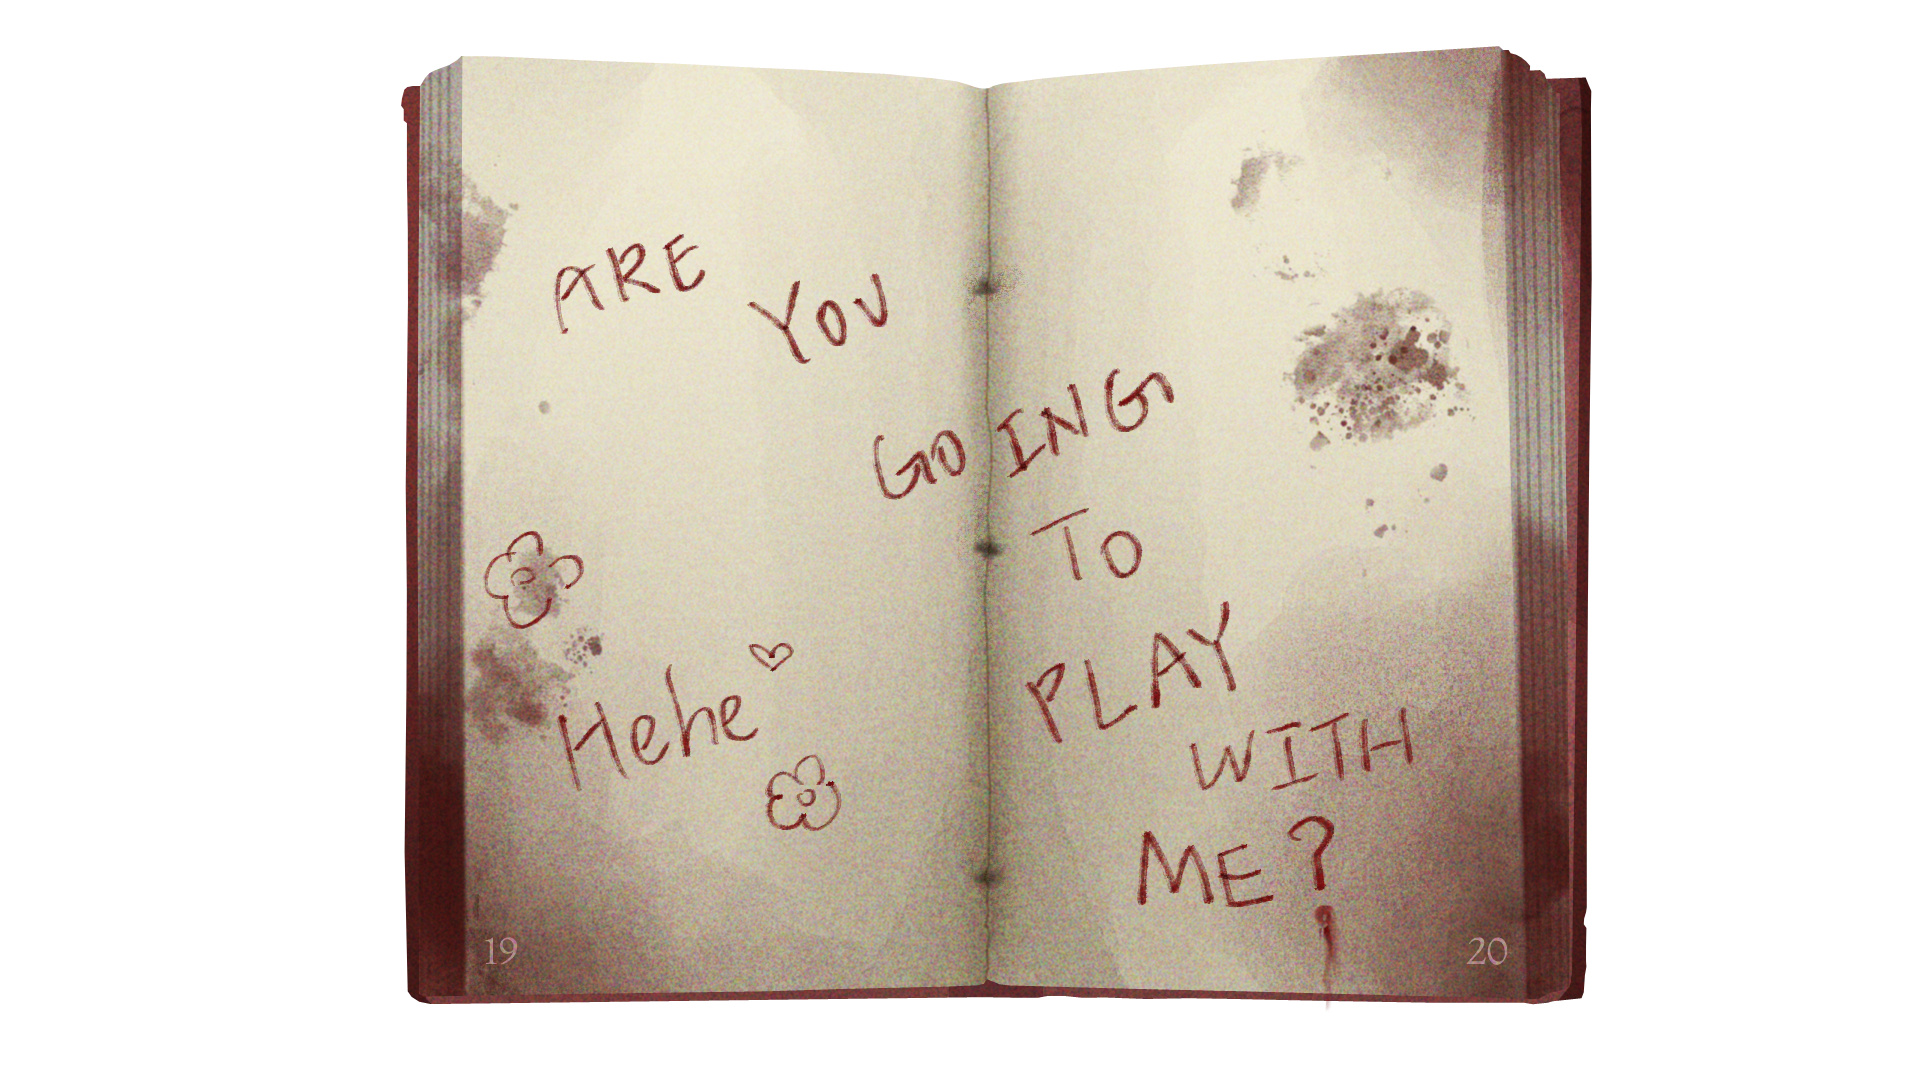 ARE
YOU
GOING
TO
PLAY
WITH
ME?
Hehe
19
20